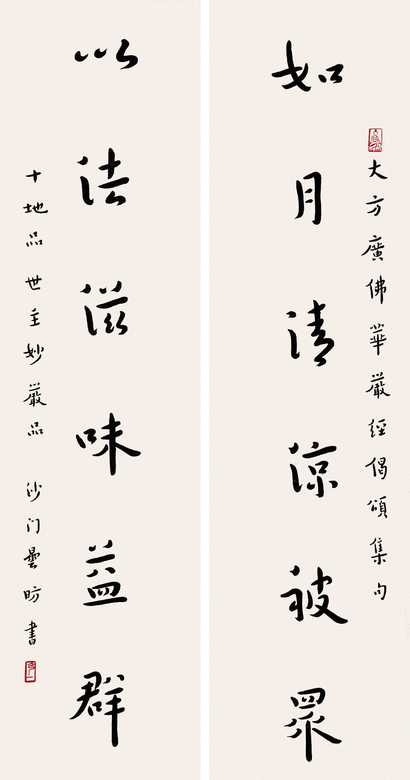 大方廣佛華嚴經偈頌集句
如月清涼被眾
以法滋味益群
十地品 世主妙嚴品 沙门曇昉書